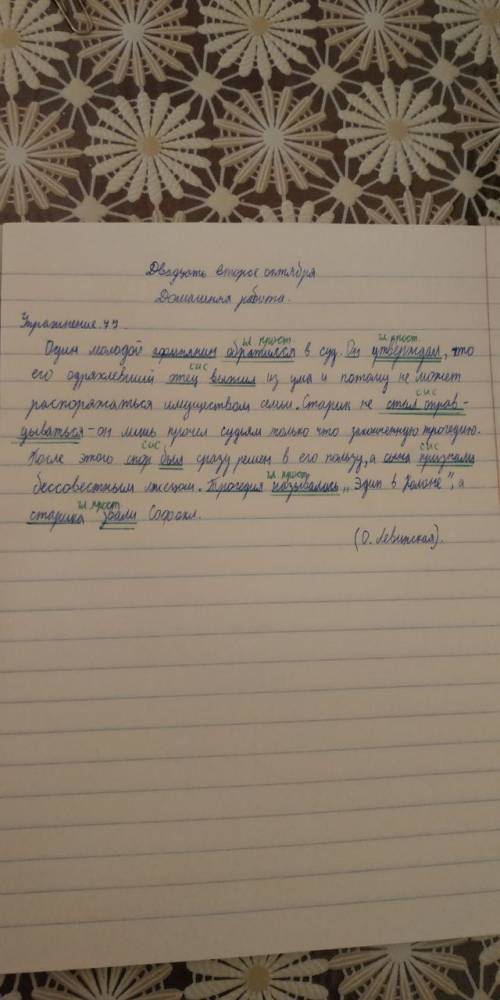 Двадцать второе октября
Домашняя работа.
Упражнение 77.
гл. прост гл. прост
Один молодой афинянин обратился в суд. Он утверждал, что
сис
его одряхлевший отец выжил из ума и потому не может
сис
распоряжаться имуществом семьи. Старик не стал оправ-
дываться - он лишь прочёл судьям только что законченную трагедию.
сис сис
После этого спор был сразу решен в его пользу, а сына признали
гл. прост
бессовестным лжецом. Трагедия называлась „Эдип в Колоне", а
гл. прост
старика звали Софокл.
(О. Левинская).